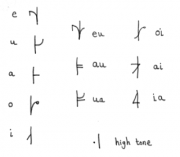 e
u
a
o
i
eu
au
ua
oi
ai
ia
high tone